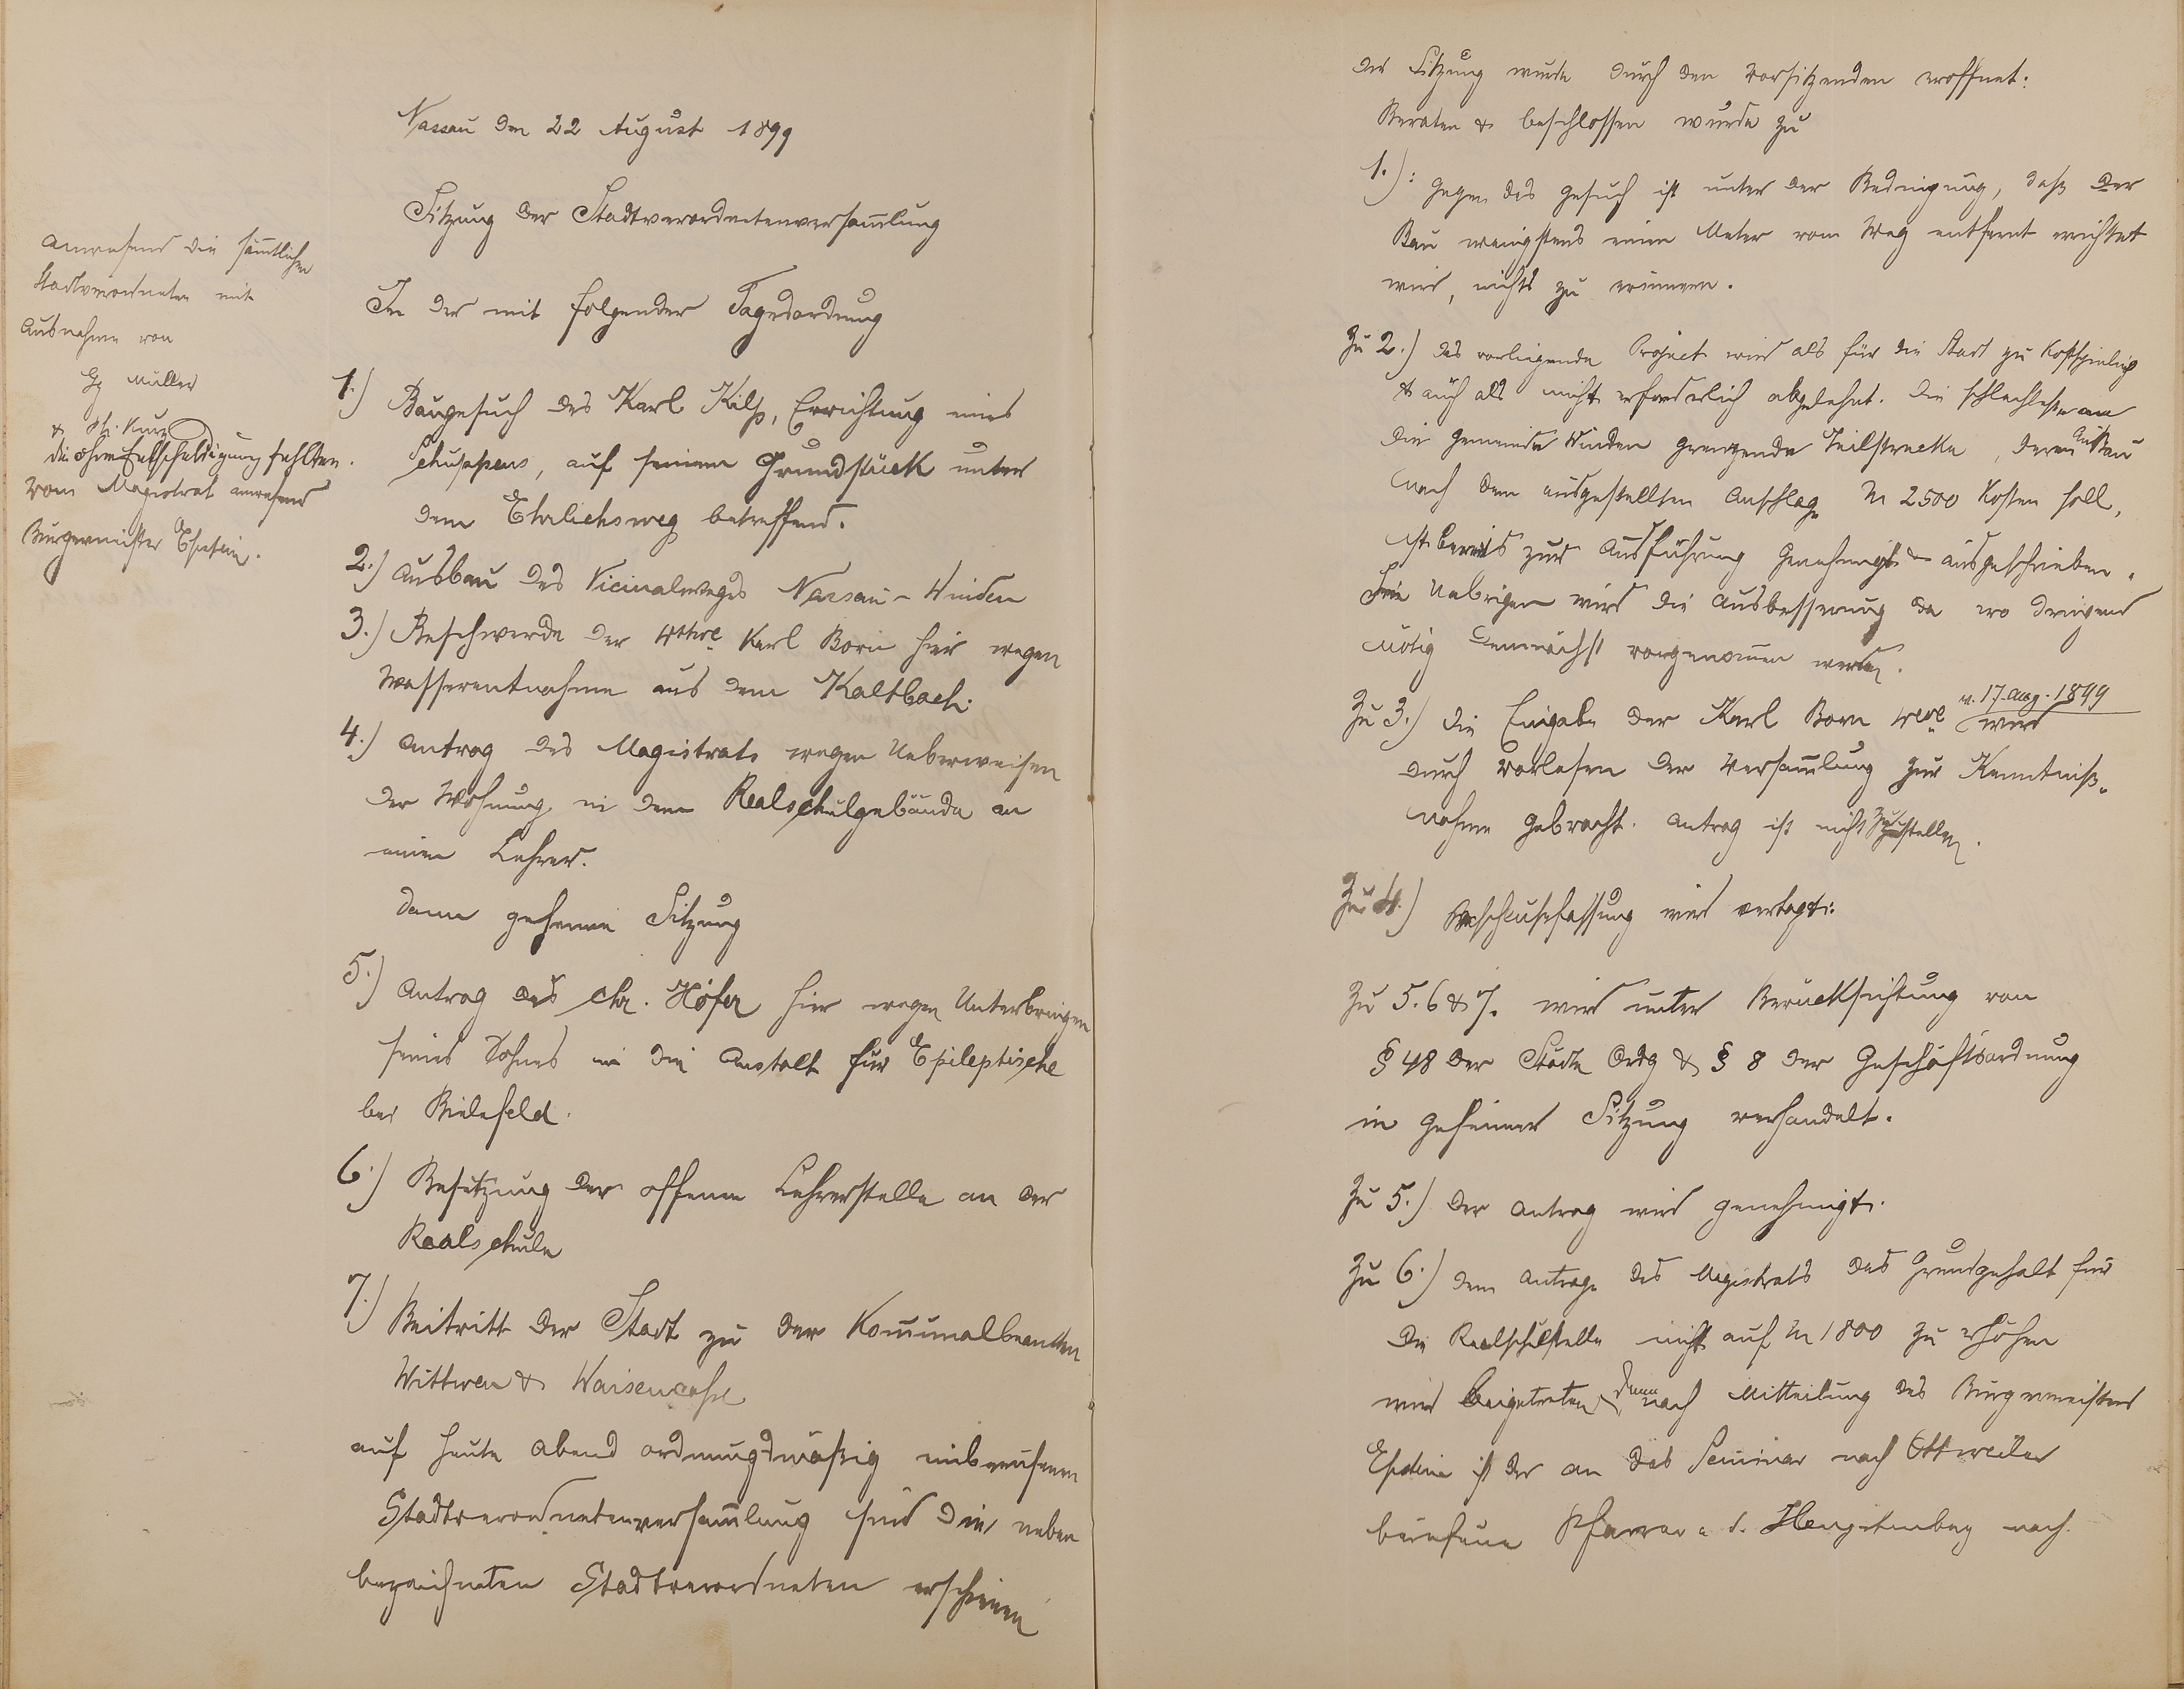 Nassau den 22 August 1899
Sitzung der Stadtverordnetenversam̄lung
In der mit folgender Tagesordnung
1.) Baugesuch des Karl Kilp, Errichtung eines
Schuppens, auf seinem Grundstück unter
dem Ehrlichsweg betreffend.
2.) Ausbau des Vicinalweges Nassau - Winden
3.) Beschwerde der Wttwe Karl Born hier wegen
Wasserentnahme aus dem Kaltbach.
4.) Antrag des Magistrats wegen Ueberweisen
der Wohnung in dem Realschulgebäude an
einen Lehrer.
dann geheime Sitzung
5.) Antrag des Chr. Höfer hier wegen Unterbringen
seines Sohnes in die Anstalt für Epileptische
bei Bielefeld.
6.) Besetzung der offenen Lehrerstelle an der
Realschule
7.) Beitritt der Stadt zu der Kom̄unalbeamten
Wittwen & Waisencasse
auf heute Abend ordnungsmäßig einberufenen
Stadtverordnetenversam̄lung sind die neben
bezeichneten Stadtverordneten erschienen
Anwesend die säm̄tlichen
Stadtverordneten mit
Ausnahme von
Gg Müller
& Kurz
die ohne Entschuldigung fehlten.
Vom Magistrat anwesend
Bürgermeister Epstein.
Die Sitzung wurde durch den Vorsitzenden eröffnet:
Beraten & beschlossen wurde zu
1.): Gegen das Gesuch ist unter der Bedingung, daß der
Bau wenigstens einen Meter vom Weg entfernt errichtet
wird, nichts zu erinnern.
Zu 2.) Das vorliegende Project wird als für die Stadt zu kostspielig
& auch als nicht erforderlich abgelehnt. Die schlechteste an
die Gemeinde Winden grenzende Teilstrecke, deren Ausbau
nach dem aufgestellten Anschlag M 2500 kosten soll,
ist bereits zur Ausführung genehmigt & ausgeschrieben.
Im Uebrigen wird die Ausbesserung da wo dringend
nötig demnächst vorgenom̄en werden.
Zu 3.) Die Eingabe der Karl Born Wwe v. 17. Aug. 1899 wird
durch Vorlesen der Versam̄lung zur Kenntniß-
nahme gebracht. Antrag ist nicht zu stellen.
Zu 4.) Beschlussfassung wird vertagt.
Zu 5. 6 & 7. wird unter Berücksichtigung von
§ 48 der Städte Ordg & § 8 der Geschäftsordnung
in geheimer Sitzung verhandelt.
Zu 5.) Der Antrag wird genehmigt.
Zu 6.) Dem Antrage des Magistrats das Grundgehalt für
die Realschulstelle nicht auf M 1800 zu erhöhen
wird beigetreten, denn nach Mitteilung des Bürgermeisters
Epstein ist der an das Seminar nach Ottweiler
berufene Pfarrer Hengstenberg nach